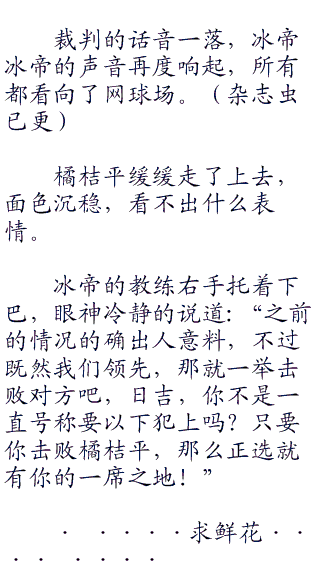 裁判的话音一落，冰帝
冰帝的声音再度响起，所有
都看向了网球场。（杂志虫
已更）
橘桔平缓缓走了上去，
面色沉稳，看不出什么表
情。
冰帝的教练右手托着下
巴，眼神冷静的说道：“之前
的情况的确出人意料，不过
既然我们领先，那就一举击
败对方吧，日吉，你不是一
直号称要以下犯上吗？只要
你击败橘桔平，那么正选就
有你的一席之地！”
· · · · ·求鲜花· ·
· · · · · ·